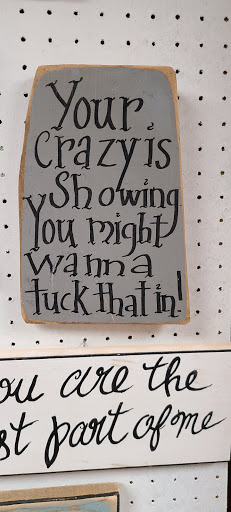 Your
Crazy is
Showing
You might
wanna
tuck that in!
ou are the
st part of me